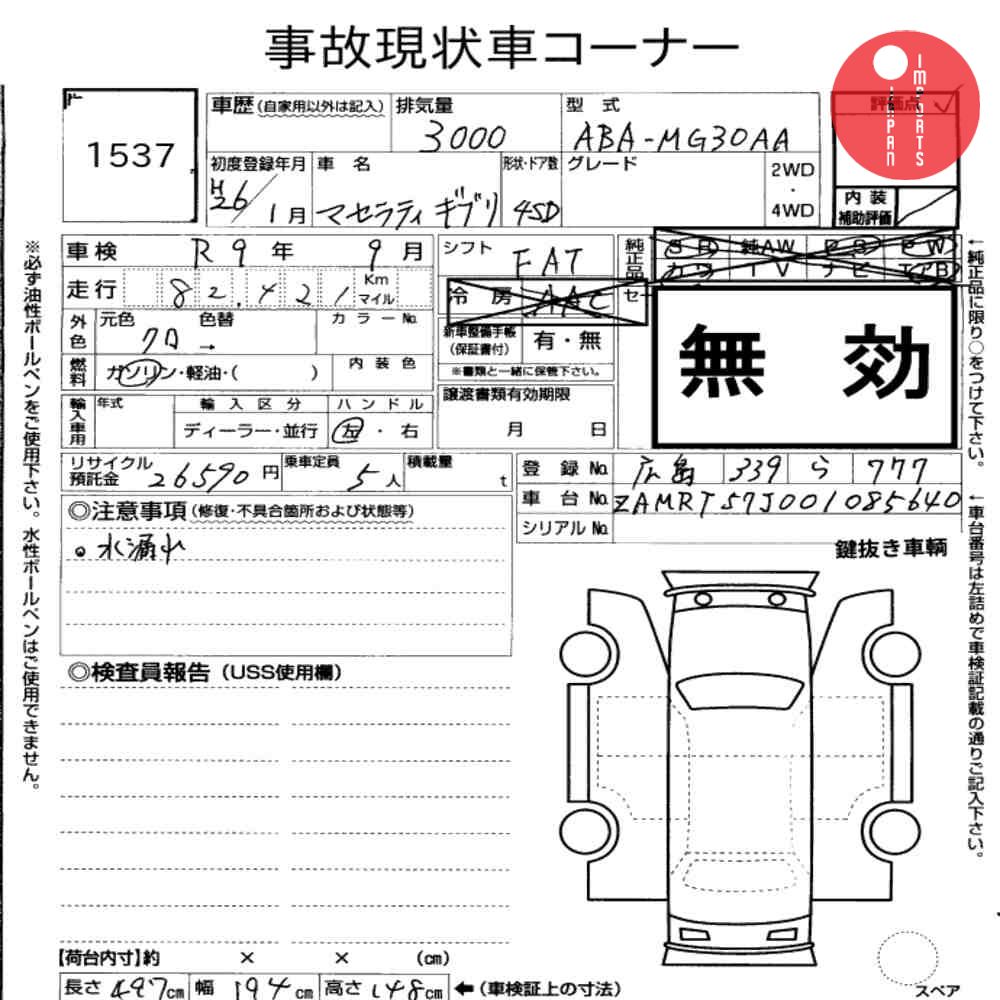 事故現状車コーナー
IMPORTS
JAPAN
1537
車歴(自家用以外は記入)
排気量
3000
型 式
ABA-MG30AA
評価点
初度登録年月
H26/1月
車 名
マセラティ ギブリ
形状・ドア数
4SD
グレード
2WD
・
4WD
内 装
補助評価
車 検 R9年 9月
走 行 82,421 Km マイル
外色 元色 色替 カラーNo.
クロ →
燃料 ガソリン・軽油・( ) 内 装 色
輸入車用 年式 輸 入 区 分 ハ ン ド ル
ディーラー・並行 左 ・ 右
シフト
FAT
冷 房 AAC
新車整備手帳
(保証書付)
有・無
※書類と一緒に保管下さい。
譲渡書類有効期限
月 日
純正品
純AW
TV ナビ
セー
無 効
リサイクル
預託金
26590円
乗車定員
5人
積載量
t
登 録 No. 広島 339 ら 777
車 台 No. ZAMRT57J001085640
シリアルNo.
◎注意事項(修復・不具合箇所および状態等)
・水漏れ
鍵抜き車輌
◎検査員報告(USS使用欄)
【荷台内寸】約 × × (cm)
長さ 497cm 幅 194cm 高さ 148cm ←(車検証上の寸法)
スペア
※必ず油性ボールペンをご使用下さい。水性ボールペンはご使用できません。
←純正品に限り○をつけて下さい。
←車台番号は左詰めで車検証記載の通りご記入下さい。